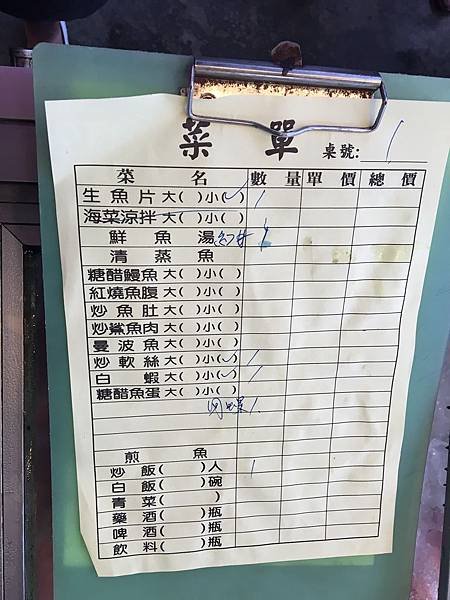 菜 單 桌號: 1
菜 名 數 量 單 價 總 價
生 魚 片 大( )小(✓) 1
海菜涼拌 大( )小( )
鮮 魚 湯
清 蒸 魚
糖醋鰻魚 大( )小( )
紅燒魚腹 大( )小( )
炒 魚 肚 大( )小( )
炒鯊魚肉 大( )小( )
曼 波 魚 大( )小( )
炒 軟 絲 大( )小(✓) 1
白 蝦 大( )小(✓) 1
糖醋魚蛋 大( )小( )
煎 魚
炒 飯( )人 1
白 飯( )碗
青 菜( )
藥 酒( )瓶
啤 酒( )瓶
飲 料( )瓶